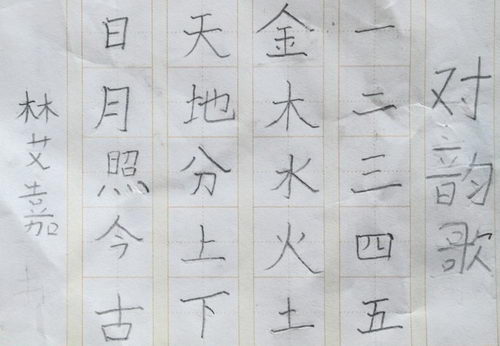 对韵歌
一二三四五
金木水火土
天地分上下
日月照今古
林艾嘉